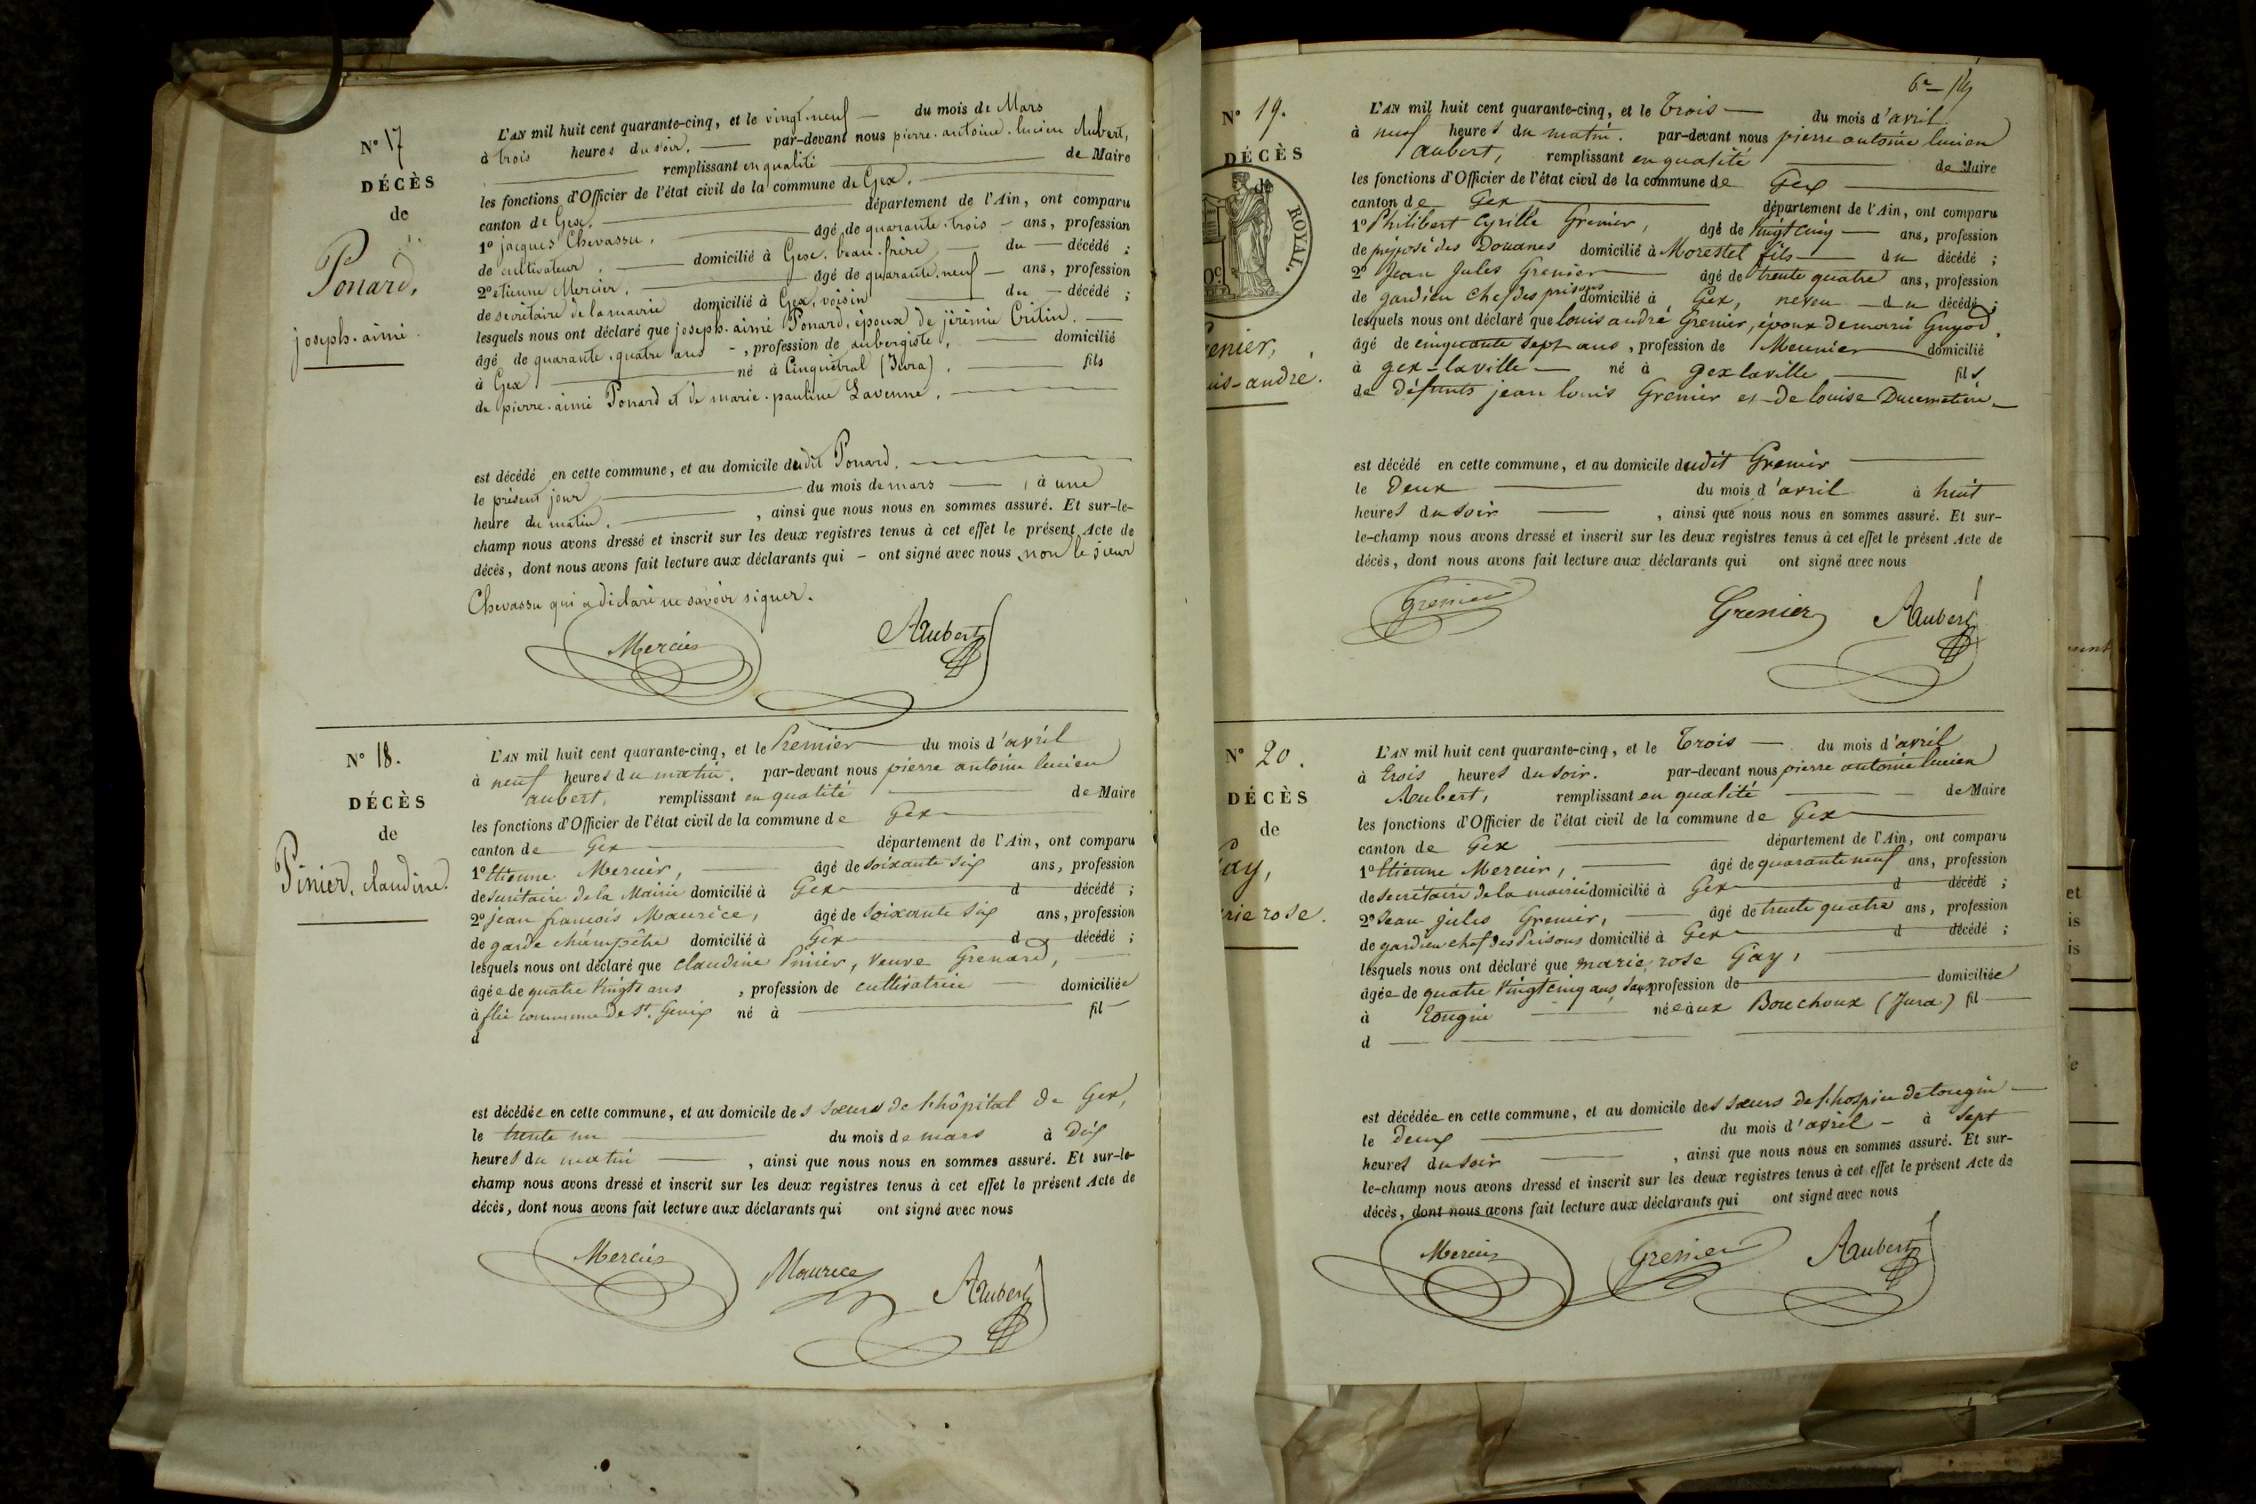 N° 17
DÉCÈS
de
Ponard,
joseph. aimé.
L'AN mil huit cent quarante-cinq, et le vingt-neuf du mois de Mars
à trois heures du soir. par-devant nous pierre. antoine. lucien Aubert,
remplissant en qualité de Maire
les fonctions d'Officier de l'état civil de la commune de Gex.
canton de Gex. département de l'Ain, ont comparu
1° jacques Chevassu. âgé de quarante. trois ans, profession
de cultivateur, domicilié à Gex. beau. frère du décédé ;
2° étienne Mercier. âgé de quarante. neuf ans, profession
de secrétaire de la mairie domicilié à Gex, voisin du décédé ;
lesquels nous ont déclaré que joseph. aimé Ponard, époux de jérémie Critin.
âgé de quarante. quatre ans, profession de aubergiste, domicilié
à Gex né à Cinquétral (Jura). fils
de pierre. aimé Ponard et de marie. pauline Lavenne.
est décédé en cette commune, et au domicile dudit Ponard.
le présent jour du mois de mars, à une
heure du matin. , ainsi que nous nous en sommes assuré. Et sur-le-
champ nous avons dressé et inscrit sur les deux registres tenus à cet effet le présent Acte de
décès, dont nous avons fait lecture aux déclarants qui – ont signé avec nous non le sieur
Chevassu qui a déclaré ne savoir signer.
Mercier Aubert
N° 18.
DÉCÈS
de
Pinier, claudine.
L'AN mil huit cent quarante-cinq, et le Premier du mois d'avril
à neuf heures du matin. par-devant nous pierre antoine lucien
aubert, remplissant en qualité de Maire
les fonctions d'Officier de l'état civil de la commune de Gex
canton de Gex département de l'Ain, ont comparu
1° Etienne Mercier, âgé de soixante six ans, profession
de secrétaire de la Mairie domicilié à Gex d décédé ;
2° jean françois Maurice, âgé de soixante six ans, profession
de garde champêtre domicilié à Gex d décédé ;
lesquels nous ont déclaré que claudine Pinier, veuve Grenard,
âgée de quatre vingts ans, profession de cultivatrice domiciliée
à flie commune de St. Genix né à fil
d
est décédée en cette commune, et au domicile des sœurs de l'hôpital de Gex,
le trente un du mois de mars à dix
heures du matin , ainsi que nous nous en sommes assuré. Et sur-le-
champ nous avons dressé et inscrit sur les deux registres tenus à cet effet le présent Acte de
décès, dont nous avons fait lecture aux déclarants qui ont signé avec nous
Mercier Maurice Aubert
N° 19.
DÉCÈS
ROYAL.
enier,
uis-andré.
L'AN mil huit cent quarante-cinq, et le Trois du mois d'avril
à neuf heures du matin. par-devant nous pierre antoine lucien
aubert, remplissant en qualité de Maire
les fonctions d'Officier de l'état civil de la commune de Gex
canton de Gex département de l'Ain, ont comparu
1° Philibert Cyrille Grenier, âgé de vingt cinq ans, profession
de préposé des Douanes domicilié à Morestel fils du décédé ;
2° Jean Jules Grenier âgé de trente quatre ans, profession
de gardien chef des prisons domicilié à Gex, neveu du décédé ;
lesquels nous ont déclaré que louis andré Grenier, époux de marie Guyod,
âgé de cinquante sept ans, profession de Meunier domicilié
à gex-laville né à gex laville fils
de défunts jean louis Grenier et de louise
est décédé en cette commune, et au domicile dudit Grenier
le Deux du mois d'avril à huit
heures du soir , ainsi que nous nous en sommes assuré. Et sur-
le-champ nous avons dressé et inscrit sur les deux registres tenus à cet effet le présent Acte de
décès, dont nous avons fait lecture aux déclarants qui ont signé avec nous
Grenier Grenier Aubert
N° 20.
DÉCÈS
de
ay,
rie rose.
L'AN mil huit cent quarante-cinq, et le Trois du mois d'avril
à trois heures du soir. par-devant nous pierre antoine lucien
Aubert, remplissant en qualité de Maire
les fonctions d'Officier de l'état civil de la commune de Gex
canton de Gex département de l'Ain, ont comparu
1° Etienne Mercier, âgé de quarante neuf ans, profession
de secrétaire de la mairie domicilié à Gex d décédé ;
2° Jean jules Grenier, âgé de trente quatre ans, profession
de gardien chef des Prisons domicilié à Gex d décédé ;
lesquels nous ont déclaré que marie rose Gay,
âgée de quatre vingt cinq ans, sans profession de domiciliée
à tougin née aux Bouchoux (Jura) fil
d
est décédée en cette commune, et au domicile des sœurs de l'hospice de tougin
le deux du mois d'avril à sept
heures du soir , ainsi que nous nous en sommes assuré. Et sur-
le-champ nous avons dressé et inscrit sur les deux registres tenus à cet effet le présent Acte de
décès, dont nous avons fait lecture aux déclarants qui ont signé avec nous
Mercier Grenier Aubert
et
is
is